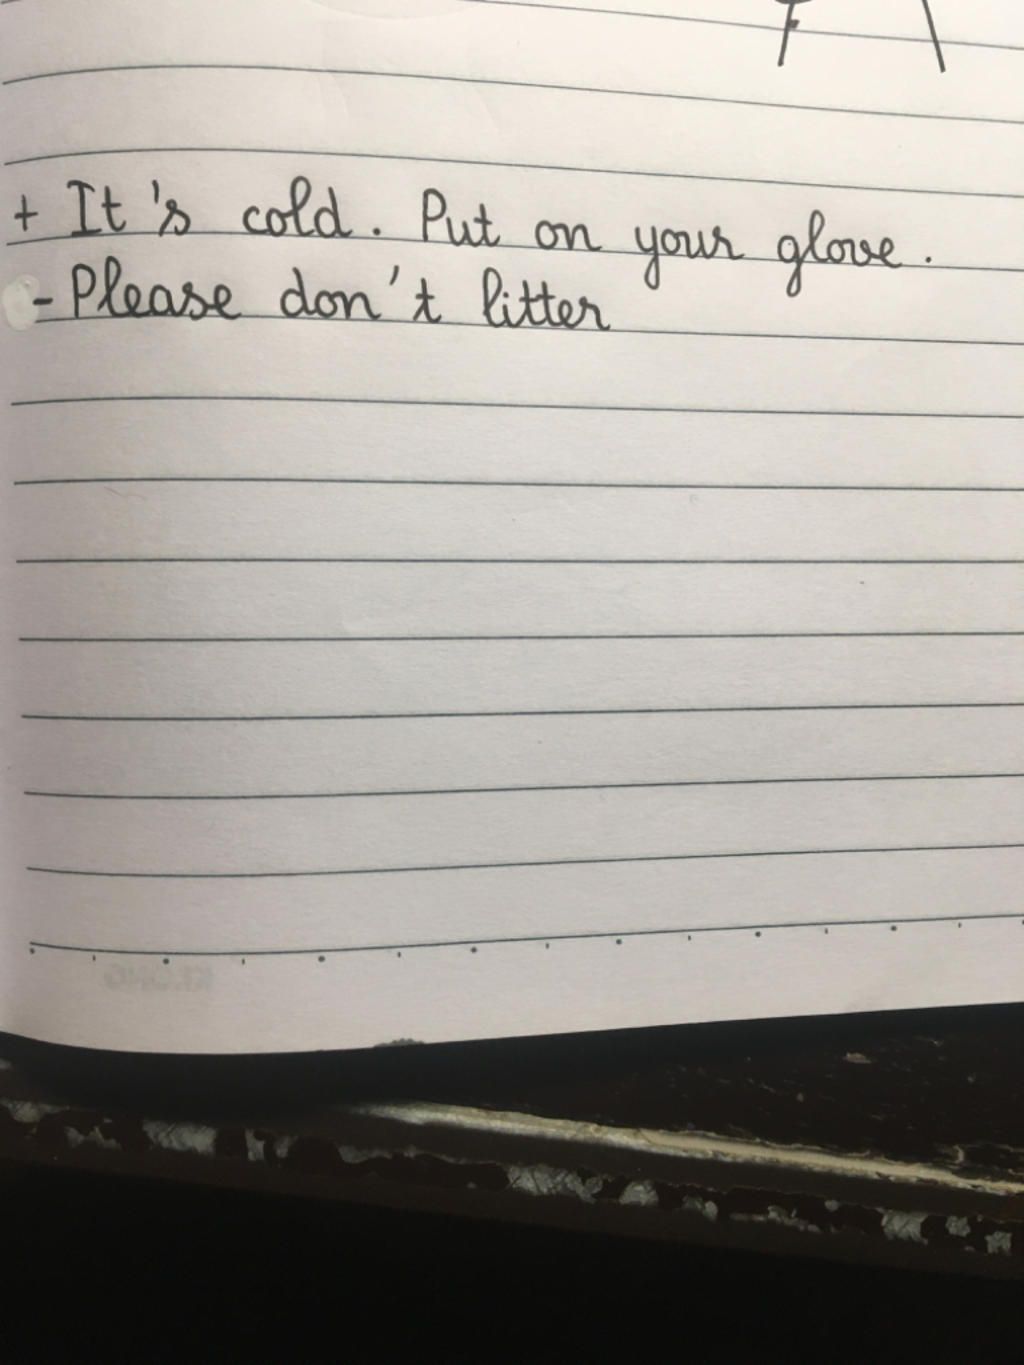 + It's cold. Put on your glove.
- Please don't litter